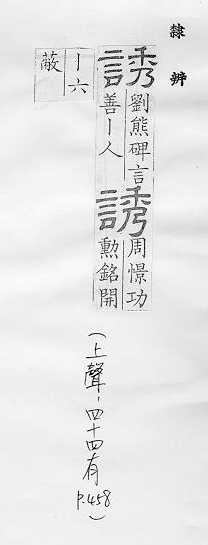 隸辨
誘劉熊碑言善丨人誘周憬功勳銘開
丨六蔽
(上聲,四十四有 p.458)